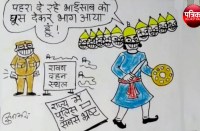 पहरा दे रहे भाईसाब को
घूस देकर भाग आया
हूँ!
पत्रिका
रावण
दहन
स्थल
राज्य में
पुलिस
सबसे भ्रष्ट